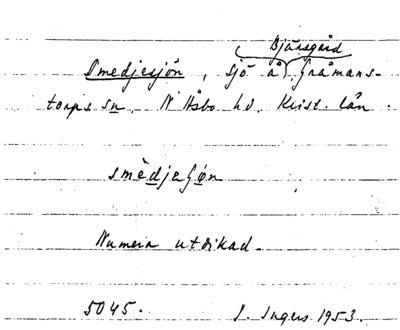 Bjärsgård
Smedjesjön, sjö å Gråmans-
torps sn. N Åsbo hd. Krist. län.
smèdjaſøn
Numera utdikad.
5045. I. Ingers 1953.